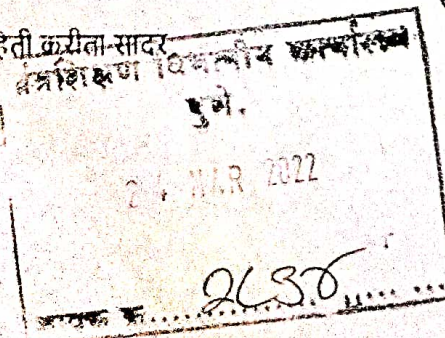 हिती करीता सादर
तंत्रशिक्षण विभागीय कार्यालय
पुणे.
24 MAR 2022
आवक क्र.